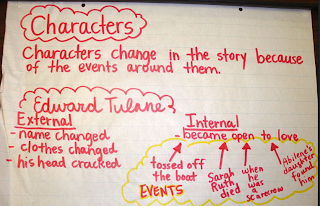 Characters
Characters change in the story because
of the events around them.
Edward Tulane
External
- name changed
- clothes changed
- his head cracked
Internal
- became open to love
tossed off
the boat
Sarah
Ruth
died
when
he
was
a
scarecrow
Abilene's
daughter
found
him
EVENTS